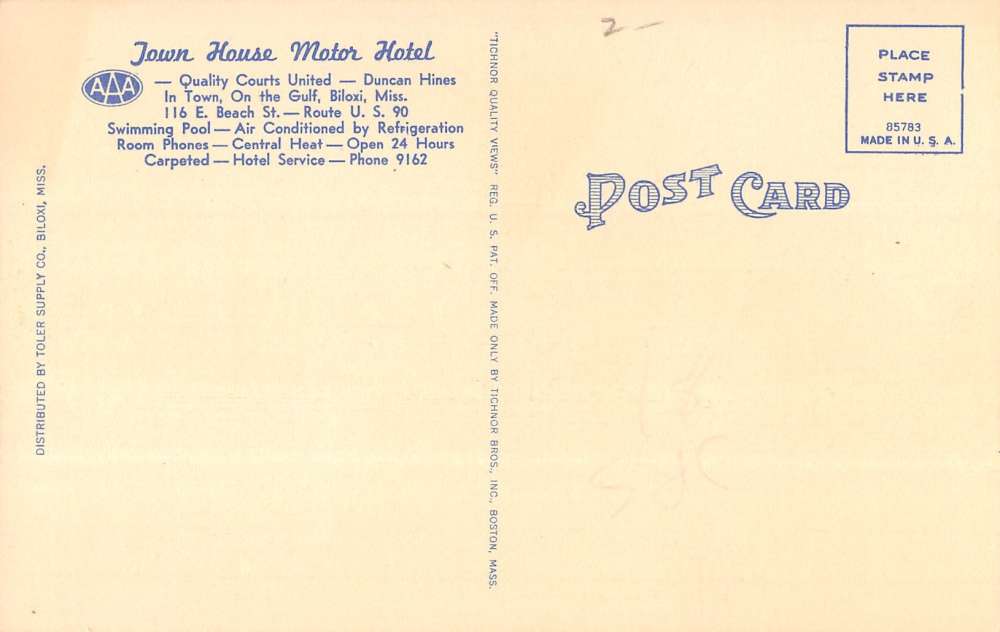 Town House Motor Hotel
AAA
— Quality Courts United — Duncan Hines
In Town, On the Gulf, Biloxi, Miss.
116 E. Beach St. — Route U. S. 90
Swimming Pool — Air Conditioned by Refrigeration
Room Phones — Central Heat — Open 24 Hours
Carpeted — Hotel Service — Phone 9162
DISTRIBUTED BY TOLER SUPPLY CO., BILOXI, MISS.
"TICHNOR QUALITY VIEWS" REG. U. S. PAT. OFF. MADE ONLY BY TICHNOR BROS., INC., BOSTON, MASS.
2—
POST CARD
PLACE
STAMP
HERE
85783
MADE IN U. S. A.